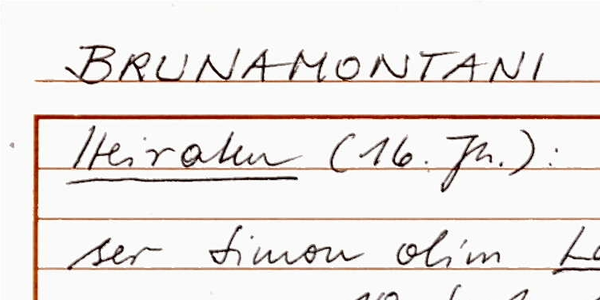 BRUNAMONTANI
Heiraten (16. Jh.):
ser Simon olim